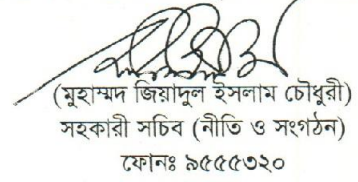 (মুহাম্মদ জিয়াদুল ইসলাম চৌধুরী)
সহকারী সচিব (নীতি ও সংগঠন)
ফোনঃ ৯৫৫৫৩২০